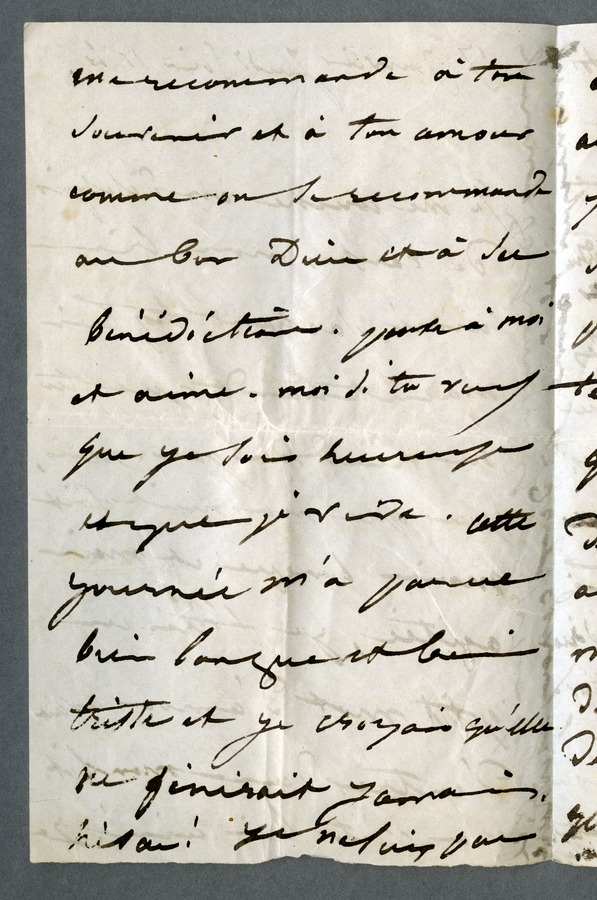 me recommande à ton
souvenir et à ton amour
comme on se recommande
au bon Dieu et à sa
bénédiction. pense à moi
et aime-moi si tu veux
que je sois heureuse
et que je vive. cette
journée m'a parue
bien longue et bien
triste et je croyais qu'elle
ne finirait jamais.
hélas! je ne suis pas